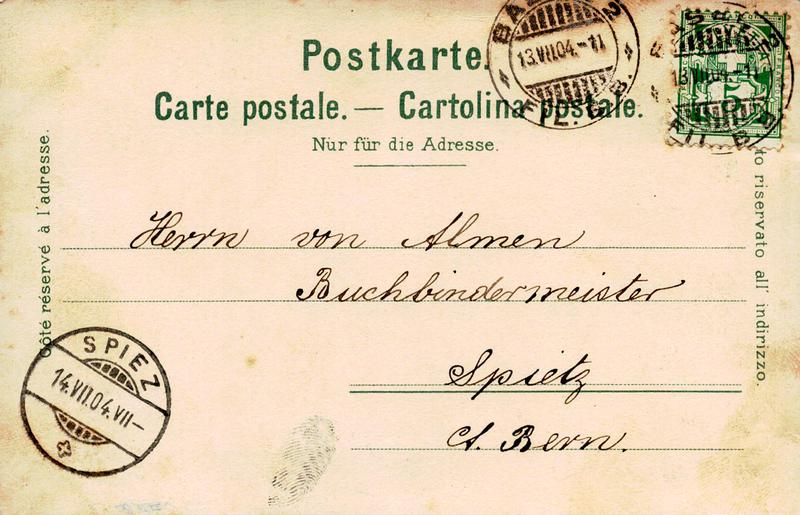 Postkarte.
Carte postale. — Cartolina postale.
Nur für die Adresse.
Côté réservé à l'adresse.
to riservato all' indirizzo.
Herrn von Almen
Buchbindermeister
Spietz
Ct. Bern.
13.VII.04.-11
13.VII.04.-11
5
SPIEZ
14.VII.04.VII—